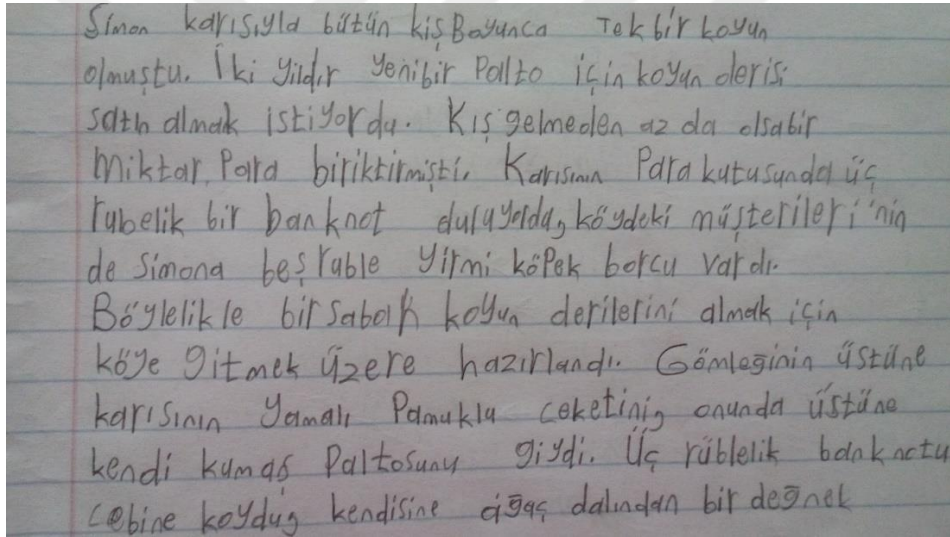 Simon karısıyla bütün kiş Boyunca Tek bir koyun
olmuştu. İki yildır yenibir Palto için koyun derisi
satın almak istiyordu. Kış gelmeden az da olsabir
miktar Para biriktirmişti. Karısının Para kutusunda üç
rubelik bir banknot duruyordu, köydeki müşterileri'nin
de Simona beş ruble yirmi köpek borcu vardı.
Böylelikle bir sabah koyun derilerini almak için
köye gitmek üzere hazırlandı. Gömleginin üstüne
karısının yamalı Pamuklu ceketini, onunda üstüne
kendi kumaş Paltosunu giydi. Üç rüblelik banknotu
cebine koydu, kendisine ağaç dalından bir değnek